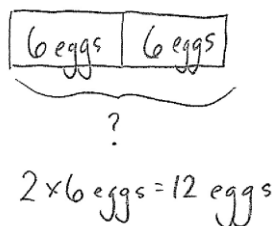 6 eggs 6 eggs
?
2 × 6 eggs = 12 eggs